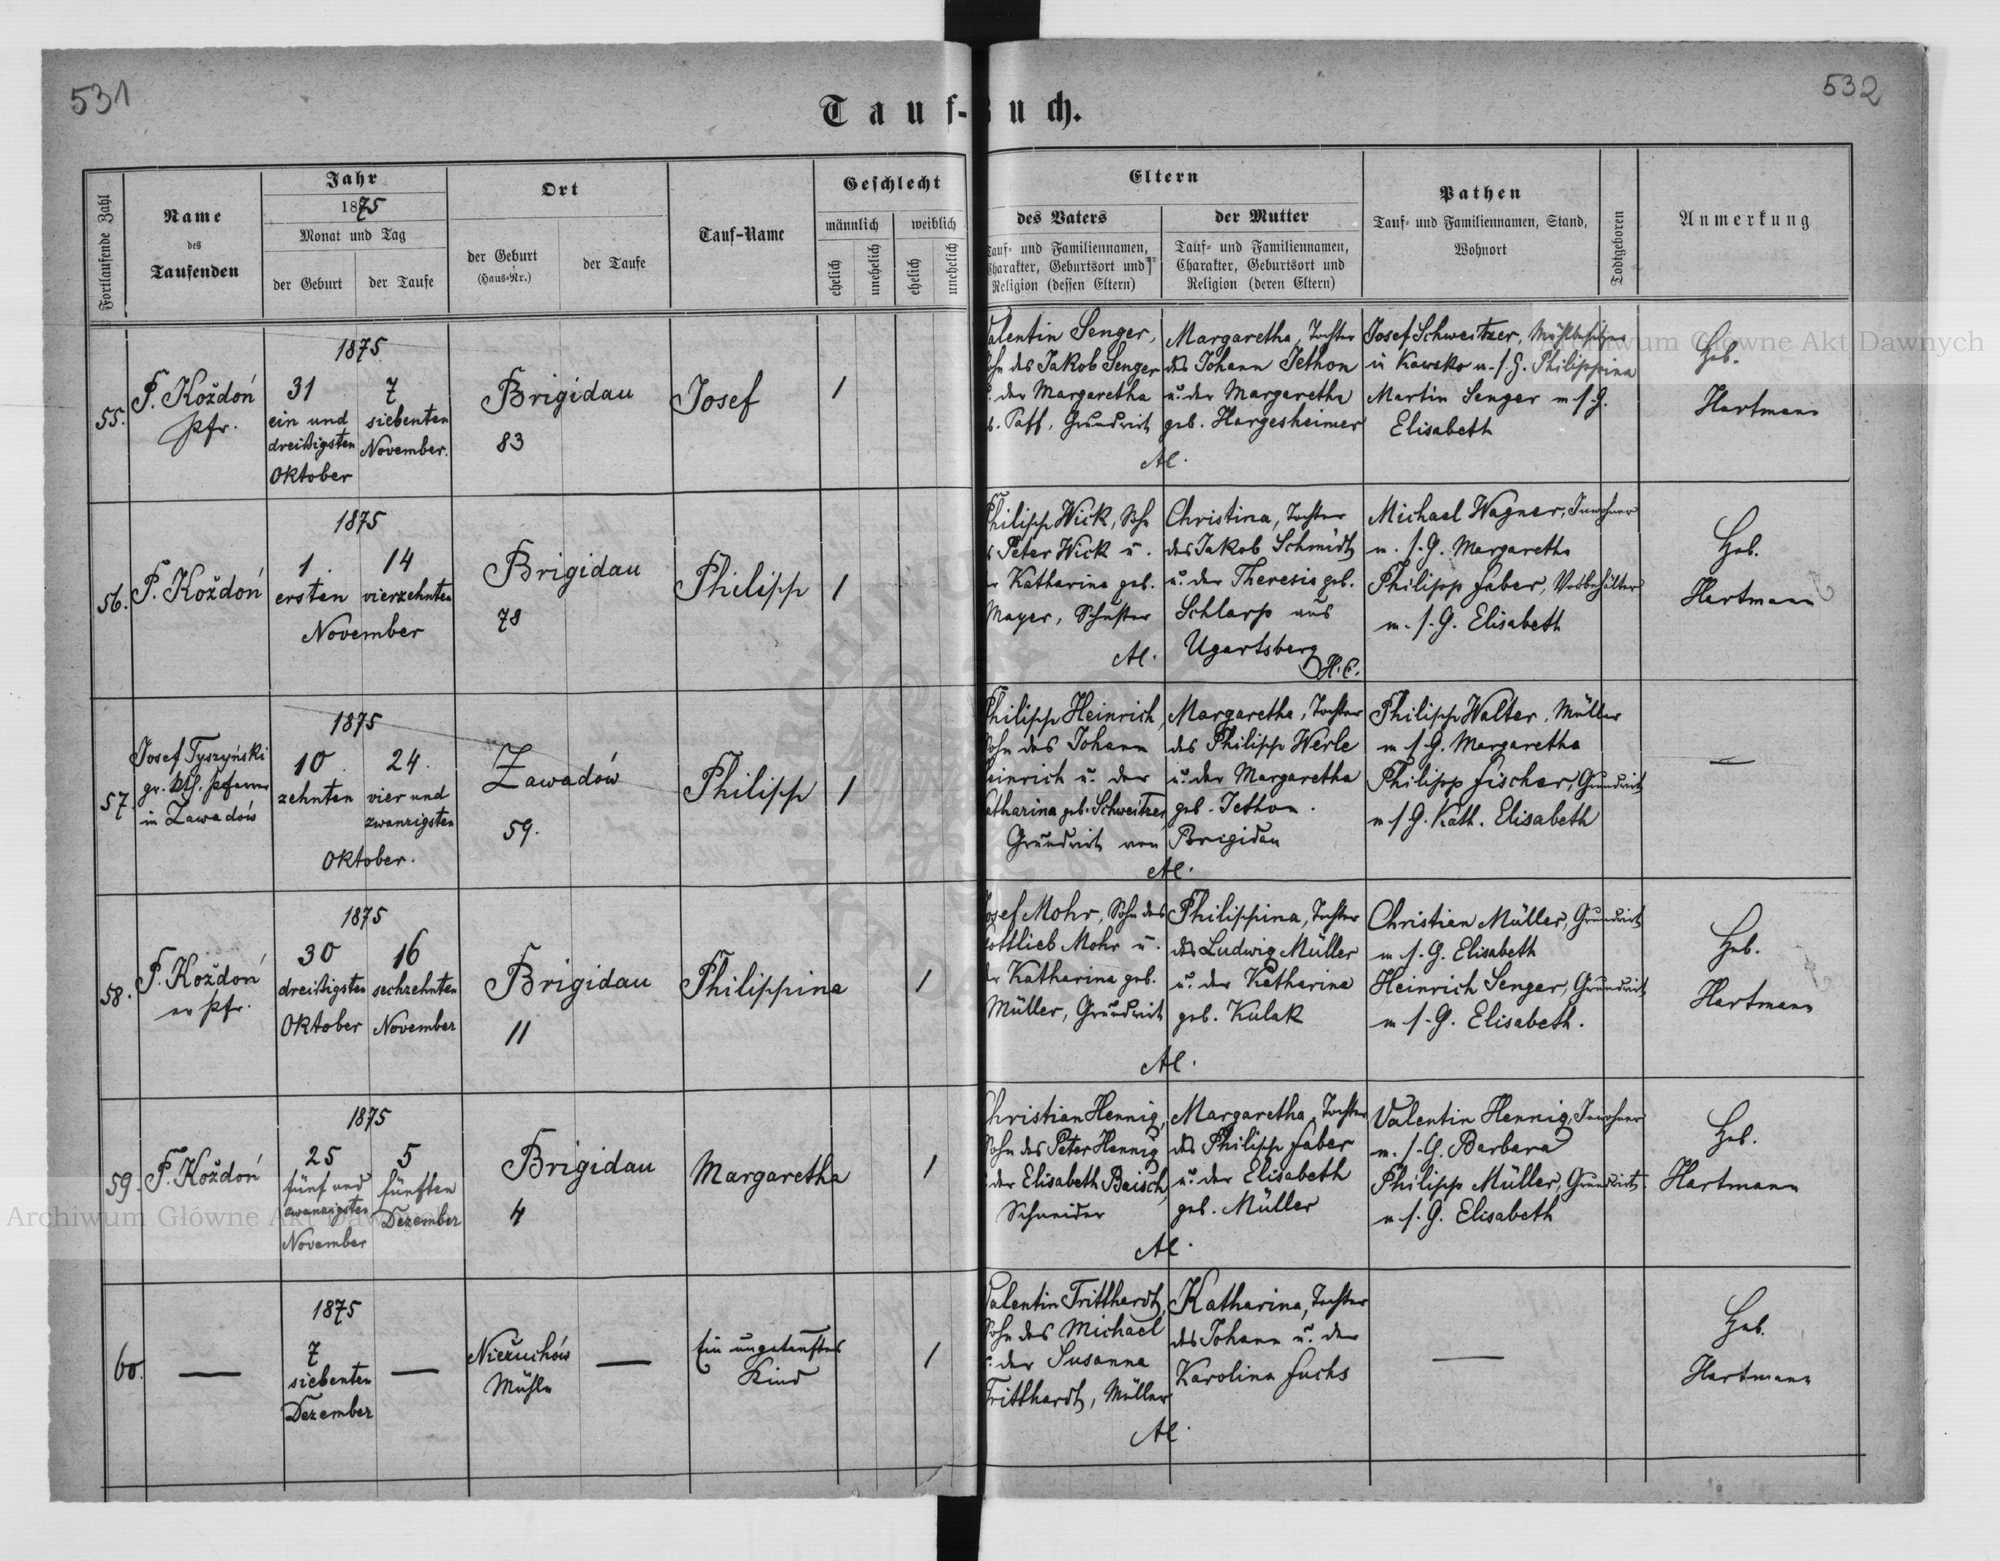 531
532
Tauf-Buch.
Fortlaufende Zahl
Name
des
Taufenden
Jahr
1875
Monat und Tag
der Geburt
der Taufe
Ort
der Geburt
(Haus-Nr.)
der Taufe
Tauf-Name
Geschlecht
männlich
weiblich
ehelich
unehelich
ehelich
unehelich
Eltern
des Vaters
Tauf- und Familiennamen,
Charakter, Geburtsort und
Religion (dessen Eltern)
der Mutter
Tauf- und Familiennamen,
Charakter, Geburtsort und
Religion (deren Eltern)
Pathen
Tauf- und Familiennamen, Stand,
Wohnort
Todtgeboren
Anmerkung
55.
P. Koždoń
Pfr.
1875
31
ein und
dreißigsten
Oktober
7
siebenten
November.
Brigidau
83
Josef
1
Valentin Senger,
Sohn des Jakob Senger
u. der Margaretha
geb. Paff, Grundwirt
Margaretha, Tochter
des Johann Jethon
u. der Margaretha
geb. Hargesheimer
Al.
Josef Schweitzer, Mühlbesitzer
in Kawsko u. s. G. Philippina
Martin Senger m s G.
Elisabeth
Heb.
Hartmann
56.
P. Koždoń
1875
1.
ersten
14
vierzehnten
November
Brigidau
78
Philipp
1
Philipp Wick, Sohn
des Peter Wick u.
der Katharina geb.
Mayer, Schuster
Al.
Christina, Tochter
des Jakob Schmidt
u. der Theresia geb.
Schlarp aus
Ugartsberg
H.C.
Michael Wagner, Inwohner
m. s. G. Margaretha
Philipp Faber, Vorbehälter
m. s. G. Elisabeth
Heb.
Hartmann
57.
Josef Tyszyński
gr. kth. Pfarrer
in Zawadów
1875
10.
zehnten
24.
vier und
zwanzigsten
Oktober.
Zawadów
59.
Philipp
1
Philipp Heinrich,
Sohn des Johann
Heinrich u. der
Katharina geb. Schweitzer
Grundwirt von
Margaretha, Tochter
des Philipp Werle
u. der Margaretha
geb. Jethon.
Brigidau
Al.
Philipp Walter, Müller
m s G. Margaretha
Philipp Fischer, Grundwirt
m s G. Kath. Elisabeth
—
58.
P. Koždoń
ev Pfr.
1875
30
dreißigsten
Oktober
16
sechzehnten
November
Brigidau
11
Philippina
1
Josef Mohr, Sohn des
Gottlieb Mohr u.
der Katharina geb.
Müller, Grundwirt
Philippina, Tochter
des Ludwig Müller
u. der Katharina
geb. Kulak
Al.
Christian Müller, Grundwirt
m s. G. Elisabeth
Heinrich Senger, Grundwirt
m s. G. Elisabeth.
Heb.
Hartmann
59.
P. Koždoń
1875
25
fünf und
zwanzigsten
November
5
fünften
Dezember
Brigidau
4
Margaretha
1
Christian Hennig,
Sohn des Peter Hennig
u. der Elisabeth Baisch,
Schneider
Margaretha, Tochter
des Philipp Faber
u. der Elisabeth
geb. Müller
Al.
Valentin Hennig, Inwohner
m. s. G. Barbara
Philipp Müller, Grundwirt
m s. G. Elisabeth
Heb.
Hartmann
60.
—
1875
7
siebenten
Dezember
—
Nieżuchów
Mühle
—
Ein ungetauftes
Kind
1
Valentin Tritthardt,
Sohn des Michael
u. der Susanna
Tritthardt, Müller
Katharina, Tochter
des Johann u. der
Karolina Fuchs
Al.
—
Heb.
Hartmann
Archiwum Główne Akt Dawnych
Archiwum Główne Akt Dawnych